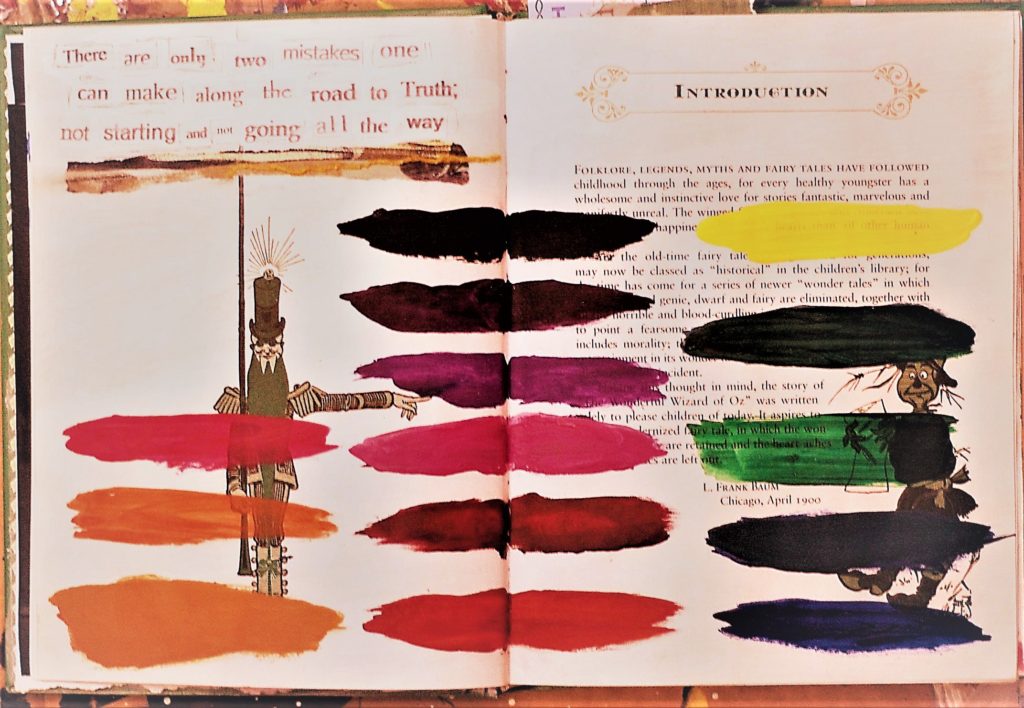 There are only two mistakes one
can make along the road to Truth;
not starting and not going all the way
INTRODUCTION
FOLKLORE, LEGENDS, MYTHS AND FAIRY TALES HAVE FOLLOWED
childhood through the ages, for every healthy youngster has a
wholesome and instinctive love for stories fantastic, marvelous and
unreal. The winged
hearts than of other human
the old-time fairy
may now be classed as "historical" in the children's library; for
time has come for a series of newer "wonder tales" in which
genie, dwarf and fairy are eliminated, together with
horrible and blood-curdling
to point a fearsome
includes morality;
in its
thought in mind, the story of
Wonderful Wizard of Oz" was written
to please children of today. It aspires to
fairy tale, in which the won
are retained and the heart aches
are left out.
L. FRANK BAUM
Chicago, April 1900